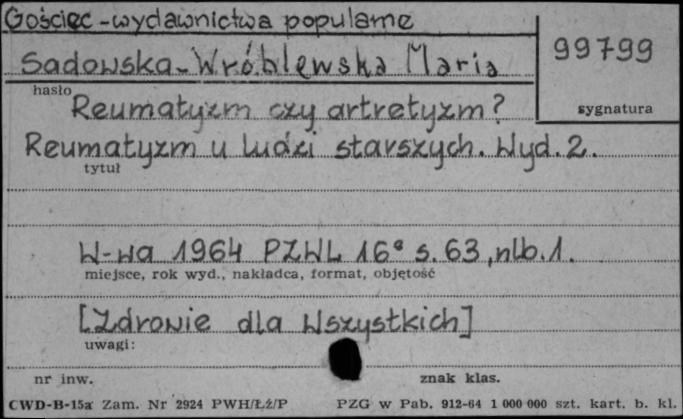 Gościec - wydawnictwa popularne
99799
Sadowska-Wróblewska Maria
hasło
sygnatura
Reumatyzm czy artretyzm?
Reumatyzm u ludzi starszych. Wyd. 2.
tytuł
W-wa 1964 PZWL 16° s. 63, nlb. 1.
miejsce, rok wyd., nakładca, format, objętość
[Zdrowie dla Wszystkich]
uwagi:
nr inw.
znak klas.
CWD-B-15a Zam. Nr 2924 PWH/Łż/P PZG w Pab. 912-64 1 000 000 szt. kart. b. kl.